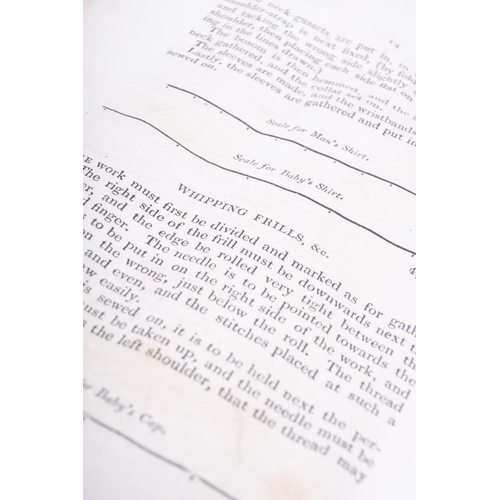 neck gussets are put in, in
shoulder-strap is next fixed, (by fold
and tacking the wrong side slightly
shoulder, then placing each side flat on
ing in the lines drawn.)
The bosom is then hemmed, and the
neck gathered, and the collar set on.
The sleeves are made, and the wristbands
Lastly, the sleeves are gathered and put in
sewed on.
Scale for Man's Shirt.
Scale for Baby's Shirt.
WHIPPING FRILLS, &c.
work must first be divided and marked as for gath
The right side of the frill must be downwards next
and the edge be rolled very tight between
finger. The needle is to be pointed towards the
to be put in on the right side of the work, and
the wrong, just below the roll. The thread
and even, and the stitches placed at such a
easily.
is sewed on, it is to be held next the per-
must be taken up, and the needle must be
the left shoulder, that the thread may
Baby's Cap.